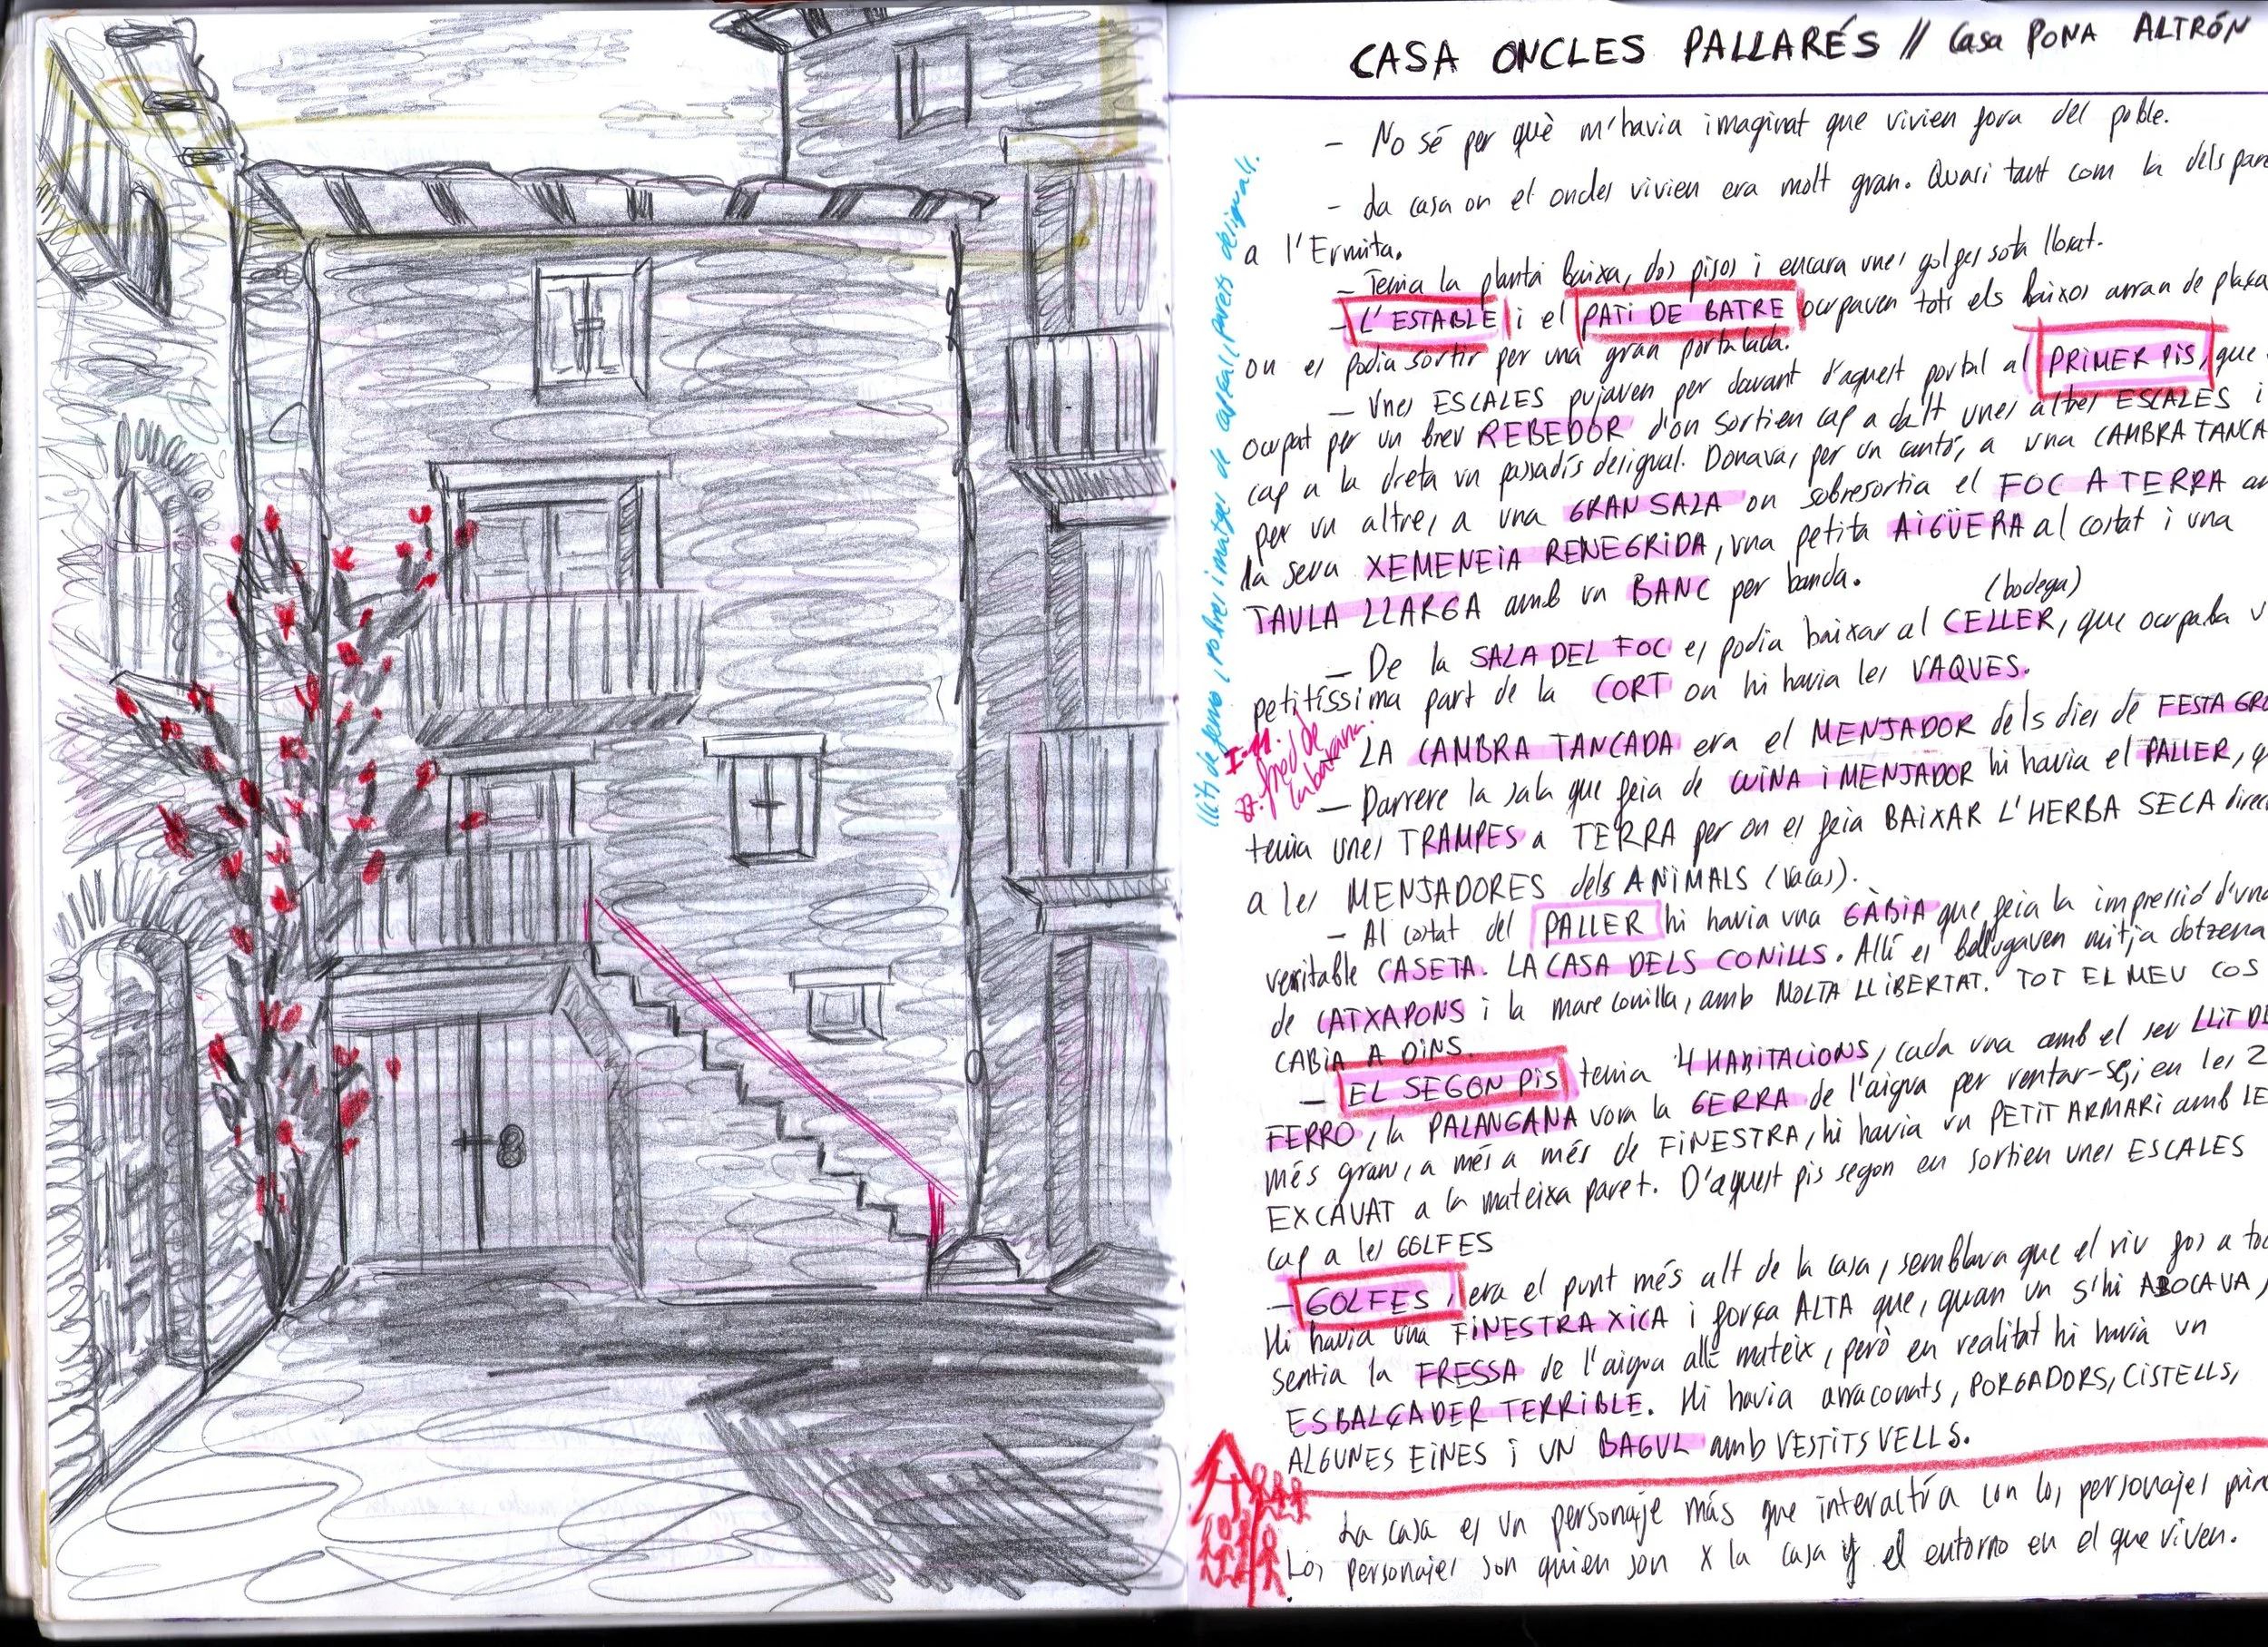 CASA ONCLES PALLARÉS // Casa PONA ALTRÓN
- No sé per què m'havia imaginat que vivien fora del poble.
- La casa on el oncles vivien era molt gran. Quasi tant com la dels pare
a l'Ermita.
- Tenia la planta baixa, dos pisos i encara unes golfes sota llosat.
- L'ESTABLE i el PATI DE BATRE ocupaven tots els baixos arran de plaça
on es podia sortir per una gran portalada.
- Unes ESCALES pujaven per davant d'aquest portal al PRIMER PIS, que
ocupat per un breu REBEDOR d'on sortien cap a dalt unes altres ESCALES i
cap a la dreta un passadís desigual. Donava, per un cantó, a una CAMBRA TANCA
per un altre, a una GRAN SALA on sobresortia el FOC A TERRA am
la seva XEMENEIA RENEGRIDA, una petita AIGÜERA al costat i una
TAULA LLARGA amb un BANC per banda.
(bodega)
- De la SALA DEL FOC es podia baixar al CELLER, que ocupaba u
petitíssima part de la CORT on hi havia les VAQUES.
- LA CAMBRA TANCADA era el MENJADOR dels dies de FESTA GRO
- Darrere la sala que feia de CUINA i MENJADOR hi havia el PALLER, q
tenia unes TRAMPES a TERRA per on es feia BAIXAR L'HERBA SECA direc
a les MENJADORES dels ANIMALS (vacas).
- Al costat del PALLER hi havia una GÀBIA que feia la impressió d'una
veritable CASETA. LA CASA DELS CONILLS. Allí es bellugaven mitja dotzena
de CATXAPONS i la mare conilla, amb MOLTA LLIBERTAT. TOT EL MEU COS
CABIA A DINS.
- EL SEGON PIS tenia 4 HABITACIONS, cada una amb el seu LLIT DE
FERRO, la PALANGANA vora la GERRA de l'aigua per rentar-se, i en les 2
més grans, a més a més de FINESTRA, hi havia un PETIT ARMARI amb LE
EXCAVAT a la mateixa paret. D'aquest pis segon en sortien unes ESCALES
cap a les GOLFES
- GOLFES, era el punt més alt de la casa, semblava que el riu fos a toc
Hi havia una FINESTRA XICA i força ALTA que, quan un s'hi ABOCAVA,
sentia la FRESSA de l'aigua allí mateix, però en realitat hi havia un
ESBALÇADER TERRIBLE. Hi havia arraconats, PORGADORS, CISTELLS,
ALGUNES EINES i UN BAGUL amb VESTITS VELLS.
La casa es un personaje más que interactúa con los personajes prin
Los personajes son quien son x la casa y el entorno en el que viven.
llits de ferro, robres i matges de capçal, parets desiguals.
fred de